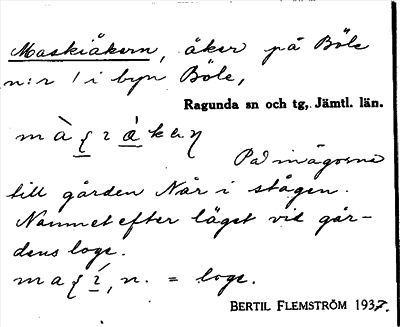 Maskiåkern, åker på Böle
n:r 1 i byn Böle,
Ragunda sn och tg, Jämtl. län.
På inägorna
till gården När i stågen.
Namnet efter läget vid går-
dens loge.
n. = loge.
BERTIL FLEMSTRÖM 1937.